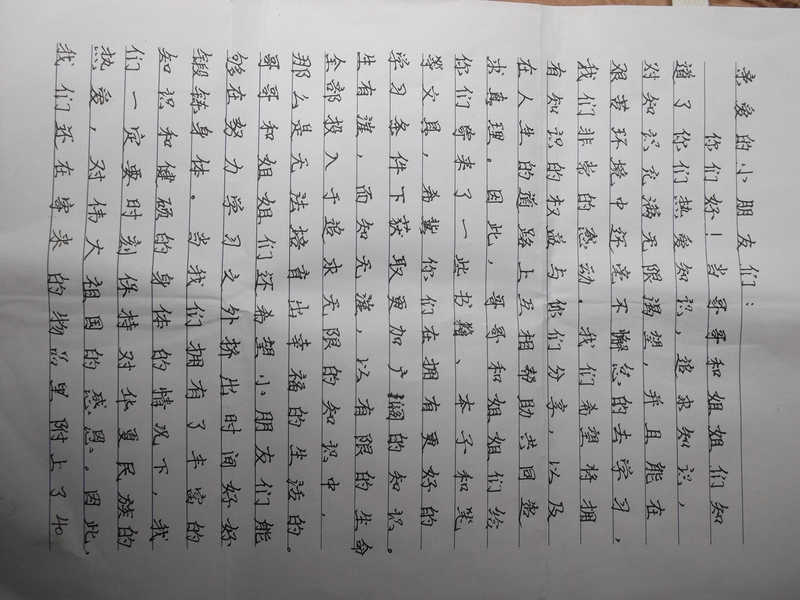 亲爱的小朋友们：
你们好！当哥哥和姐姐们知
道了你们热爱知识，追求知识，
对知识充满无限渴望，并且能在
艰苦环境中还毫不懈怠的去学习，
我们非常的感动。我们希望将拥
有知识的权益与你们分享，以及
在人生的道路上互相帮助共同
求真理。因此，哥哥和姐姐们给
你们寄来了一些书籍、本子和笔
等文具，希冀你们在拥有更好的
学习条件下获取更加广阔的知识。
生有涯，而知无涯，以有限的生命
全部投入于追求无限的知识中，
那么是无法培育出幸福的生活的。
哥哥和姐姐们还希望小朋友们能
够在努力学习之外挤出时间好好
锻练身体。当我们拥有了丰富的
知识和健硕的身体的情况下，我
们一定要时刻保持对华夏民族的
热爱，对伟大祖国的感恩。因此，
我们还在寄来的物品里附上了40